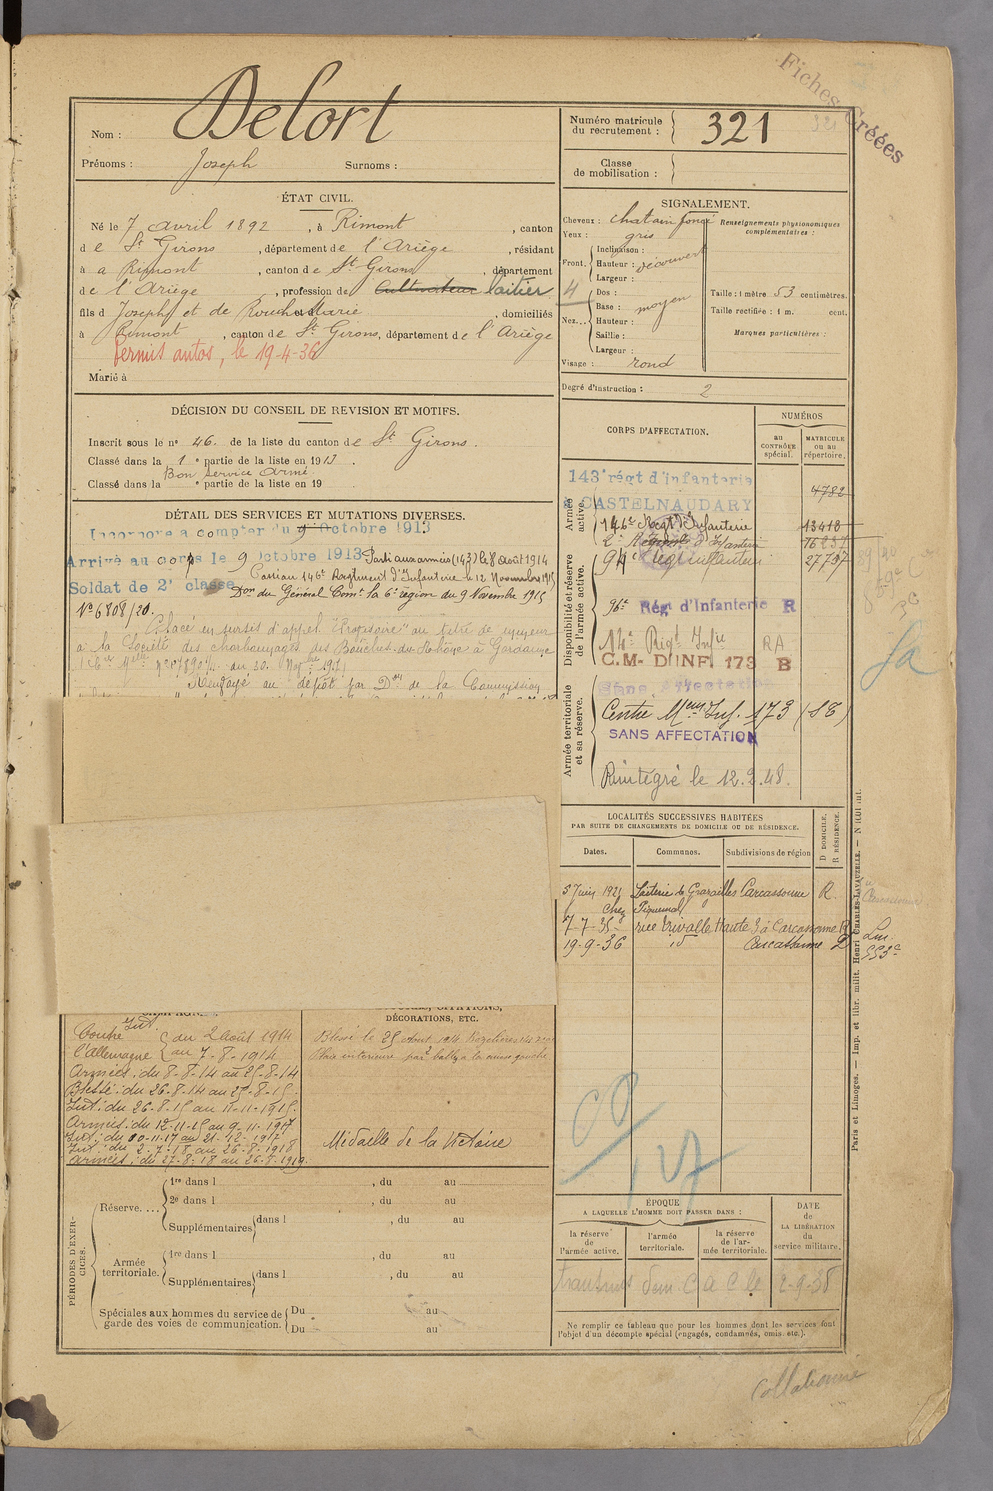 Fiches Créées
Nom : Delort
Prénoms : Joseph Surnoms :
Numéro matricule du recrutement : 321
Classe de mobilisation :
ÉTAT CIVIL.
Né le 7 avril 1892, à Rimont, canton
de St Girons, département de l'Ariège, résidant
à a Rimont, canton de St Girons, département
de l'Ariège, profession de Cultivateur laitier
fils d Joseph et de Rouch Marie, domiciliés
à Rimont, canton de St Girons, département de l'Ariège
permis autos, le 19-4-36
Marié à
SIGNALEMENT.
Cheveux : chatain foncé
Yeux : gris
Front. Inclinaison :
Hauteur : découvert
Largeur :
Nez... Dos :
Base : moyen
Hauteur :
Saillie :
Largeur :
Visage : rond
Renseignements physionomiques complémentaires :
Taille : 1 mètre 53 centimètres.
Taille rectifiée : 1 m. cent.
Marques particulières :
Degré d'instruction : 2
DÉCISION DU CONSEIL DE REVISION ET MOTIFS.
Inscrit sous le n° 46. de la liste du canton de St Girons.
Classé dans la 1e partie de la liste en 1913.
Bon service armé
Classé dans la e partie de la liste en 19
DÉTAIL DES SERVICES ET MUTATIONS DIVERSES.
Incorporé à compter du 9 Octobre 1913
Arrivé au corps le 9 Octobre 1913 Parti aux armées (143) le 8 août 1914
Soldat de 2e classe
Passé au 146e Régiment d'Infanterie le 12 Novembre 1915
Don du Général Comt la 6e région du 9 Novembre 1915
N° 6808/20.
Placé en sursis d'appel "Provisoire" au titre de mineur
à la Société des charbonnages des Bouches-du-Rhône à Gardanne
Renvoyé au dépôt par Don de la Commission
CORPS D'AFFECTATION.
NUMÉROS
au CONTRÔLE spécial.
MATRICULE ou au répertoire.
Armée active.
143e régt d'infanterie
à CASTELNAUDARY
4782
146e Régt d'Infanterie 13418
2e Régiment d'Infanterie 16231
Disponibilité et réserve de l'armée active.
94e Rég Infanterie 27737
96e Régt d'Infanterie R
14e Rigt Infie RA
C.M. D'INF. 173 B
Armée territoriale et sa réserve.
Sans Affectation
Centre Mon Inf. 173 (SE)
SANS AFFECTATION
Réintégré le 12.2.48.
LOCALITÉS SUCCESSIVES HABITÉES
PAR SUITE DE CHANGEMENTS DE DOMICILE OU DE RÉSIDENCE.
Dates. Communes. Subdivisions de région
D DOMICILE. R RÉSIDENCE.
5 Juin 1921 Laiterie de Grazailles Carcassonne R.
Chez Piquemal
7-7-35 rue Trivalle Haute 3 à Carcassonne R
19-9-36 id Carcassonne D
CAMPAGNES.
Contre l'Allemagne
Int. du 2 août 1914
au 7-8-1914
Armées : du 8-8-14 au 25-8-14
Blessé : du 26-8-14 au 25-8-15.
Int : du 26-8-15 au 11-11-1915.
Armées : du 12-11-15 au 9-11-1917
Int : du 10-11-17 au 21-12-1917
Int : du 2-7-18 au 26-8-1918
Armées : du 27-8-18 au 26-7-1919.
BLESSURES, CITATIONS, DÉCORATIONS, ETC.
Blessé le 25 août 1914
Plaie intérieure par balle à la cuisse gauche
Médaille de la Victoire
PÉRIODES D'EXERCICES.
Réserve.... 1re dans l , du au
2e dans l , du au
Supplémentaires dans l , du au
Armée territoriale. 1re dans l , du au
Supplémentaires dans l , du au
Spéciales aux hommes du service de garde des voies de communication. Du au
Du au
ÉPOQUE
A LAQUELLE L'HOMME DOIT PASSER DANS :
la réserve de l'armée active.
l'armée territoriale.
la réserve de l'armée territoriale.
DATE de LA LIBÉRATION du service militaire.
Ne remplir ce tableau que pour les hommes dont les services font
l'objet d'un décompte spécial (engagés, condamnés, omis, etc.).
Paris et Limoges. — Imp. et libr. milit. Henri CHARLES-LAVAUZELLE.
Collationné